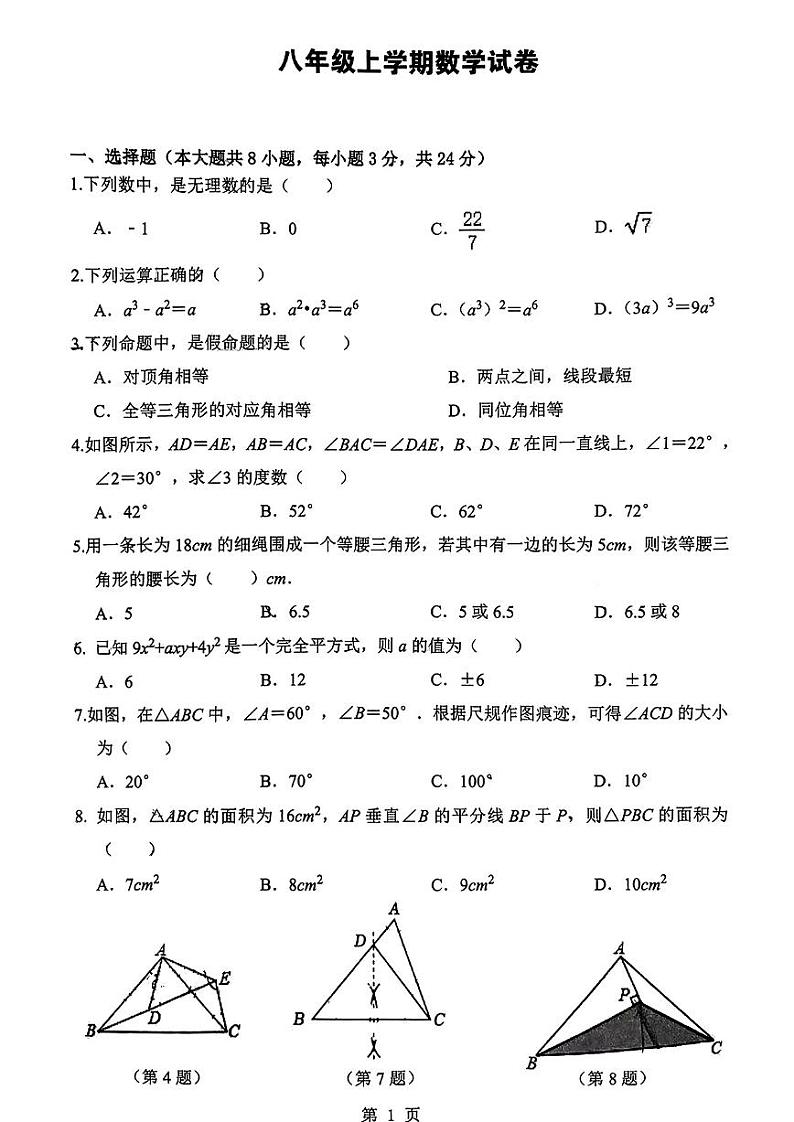 八年级上学期数学试卷
一、选择题（本大题共 8 小题，每小题 3 分，共 24 分）
1.下列数中，是无理数的是（　　）
A．﹣1　B．0　C．22/7　D．√7
2.下列运算正确的（　　）
A．a³﹣a²＝a　B．a²•a³＝a⁶　C．（a³）²＝a⁶　D．（3a）³＝9a³
3.下列命题中，是假命题的是（　　）
A．对顶角相等　B．两点之间，线段最短
C．全等三角形的对应角相等　D．同位角相等
4.如图所示，AD＝AE，AB＝AC，∠BAC＝∠DAE，B、D、E 在同一直线上，∠1＝22°，
∠2＝30°，求∠3 的度数（　　）
A．42°　B．52°　C．62°　D．72°
5.用一条长为 18cm 的细绳围成一个等腰三角形，若其中有一边的长为 5cm，则该等腰三
角形的腰长为（　　）cm．
A．5　B．6.5　C．5 或 6.5　D．6.5 或 8
6. 已知 9x²+axy+4y² 是一个完全平方式，则 a 的值为（　　）
A．6　B．12　C．±6　D．±12
7.如图，在△ABC 中，∠A＝60°，∠B＝50°．根据尺规作图痕迹，可得∠ACD 的大小
为（　　）
A．20°　B．70°　C．100°　D．10°
8. 如图，△ABC 的面积为 16cm²，AP 垂直∠B 的平分线 BP 于 P，则△PBC 的面积为
（　　）
A．7cm²　B．8cm²　C．9cm²　D．10cm²
A
E
D
B
C
（第 4 题）
A
D
B
C
（第 7 题）
A
P
B
C
（第 8 题）
第 1 页